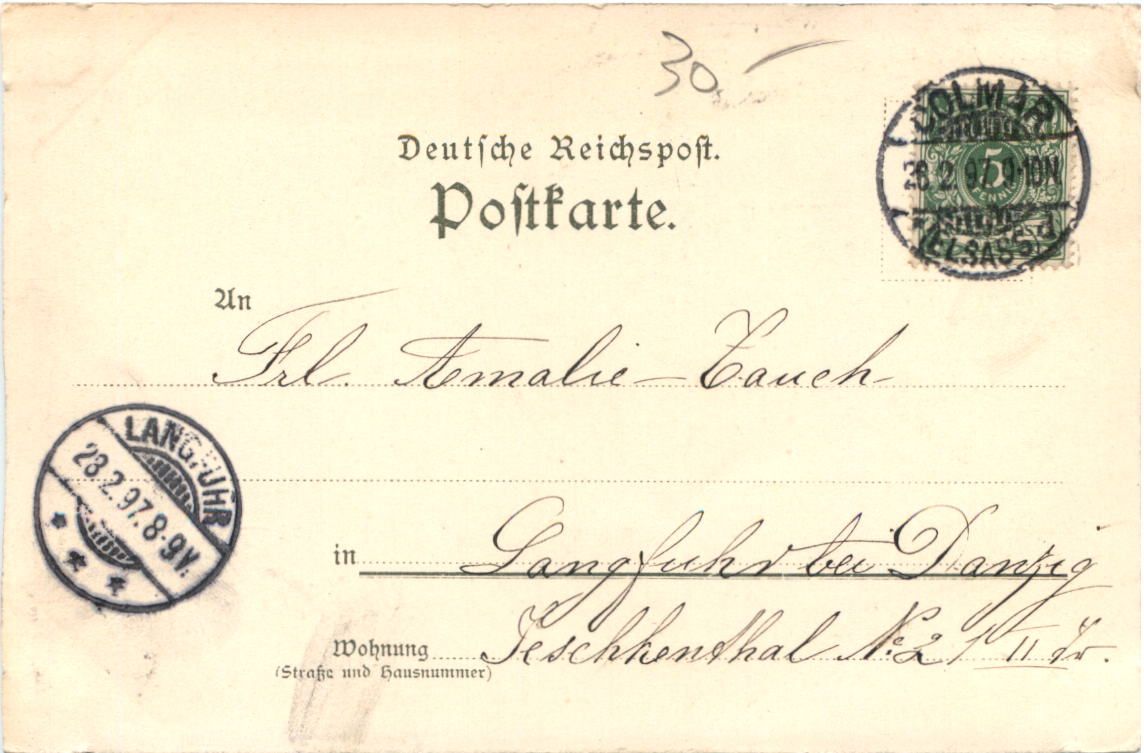 30.-
Deutsche Reichspost.
Postkarte.
COLMAR
2.97. 9-10N
(ELSASS)
5
PFENNIG
An
Frl. Amalie Tauch
LANGFUHR
28.2.97.8-9V.
in Langfuhr bei Danzig
Wohnung Jeschkenthal No 2
(Straße und Hausnummer)